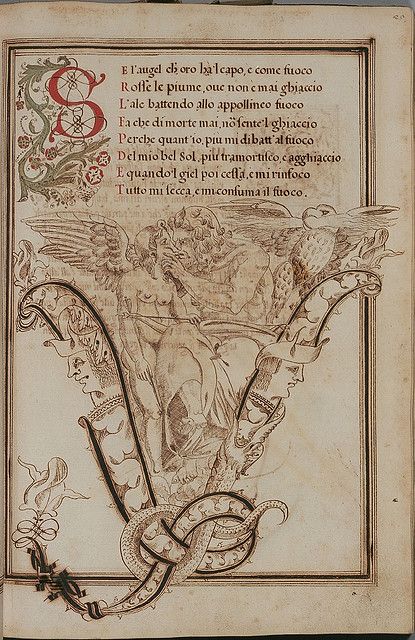 SE l'augel ch'oro ha'l capo, e come fuoco
Rosse le piume, oue non e mai ghiaccio
L'ale battendo allo appollineo fuoco
Fa che di morte mai, nõ sente'l ghiaccio
Perche quant'io, piu mi dibatt'al fuoco
Del mio bel Sol, piu tramortisco, e agghiaccio
E quando'l giel poi cessa, e mi rinfoco
Tutto mi secca, e mi consuma il fuoco.